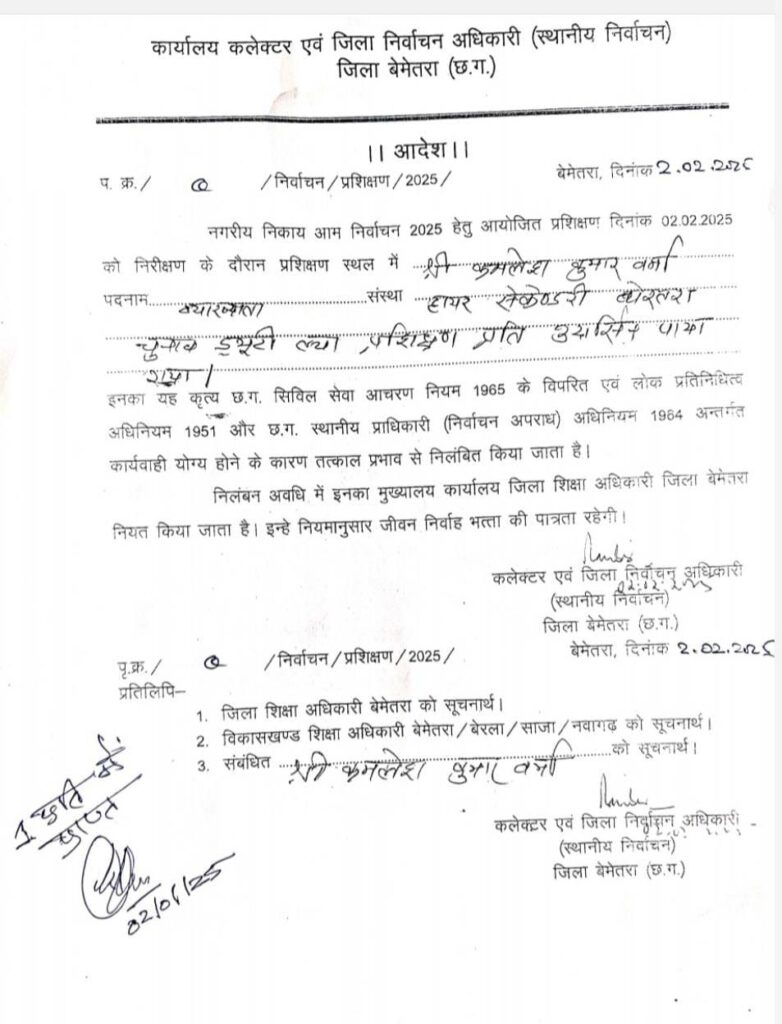 कार्यालय कलेक्टर एवं जिला निर्वाचन अधिकारी (स्थानीय निर्वाचन)
जिला बेमेतरा (छ.ग.)
।। आदेश।।
प. क्र./ /निर्वाचन/प्रशिक्षण/2025/ बेमेतरा, दिनांक 2.02.2025
नगरीय निकाय आम निर्वाचन 2025 हेतु आयोजित प्रशिक्षण दिनांक 02.02.2025
को निरीक्षण के दौरान प्रशिक्षण स्थल में श्री कमलेश कुमार वर्मा
पदनाम व्याख्याता संस्था हायर सेकेण्डरी
चुनाव ड्यूटी प्रशिक्षण प्रति पाया
गया।
इनका यह कृत्य छ.ग. सिविल सेवा आचरण नियम 1965 के विपरित एवं लोक प्रतिनिधित्व
अधिनियम 1951 और छ.ग. स्थानीय प्राधिकारी (निर्वाचन अपराध) अधिनियम 1964 अन्तर्गत
कार्यवाही योग्य होने के कारण तत्काल प्रभाव से निलंबित किया जाता है।
निलंबन अवधि में इनका मुख्यालय कार्यालय जिला शिक्षा अधिकारी जिला बेमेतरा
नियत किया जाता है। इन्हे नियमानुसार जीवन निर्वाह भत्ता की पात्रता रहेगी।
कलेक्टर एवं जिला निर्वाचन अधिकारी
(स्थानीय निर्वाचन)
जिला बेमेतरा (छ.ग.)
बेमेतरा, दिनांक 2.02.2025
पृ.क्र./ /निर्वाचन/प्रशिक्षण/2025/
प्रतिलिपि–
1. जिला शिक्षा अधिकारी बेमेतरा को सूचनार्थ।
2. विकासखण्ड शिक्षा अधिकारी बेमेतरा/बेरला/साजा/नवागढ़ को सूचनार्थ।
3. संबंधित श्री कमलेश कुमार वर्मा को सूचनार्थ।
कलेक्टर एवं जिला निर्वाचन अधिकारी
(स्थानीय निर्वाचन)
जिला बेमेतरा (छ.ग.)
1 प्रति में
प्राप्त